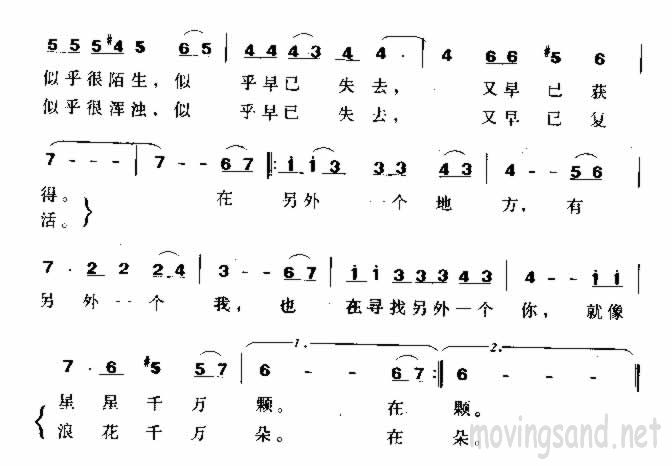 5 5 5 #4 5 6 5 | 4 4 4 4 3 4 4 · | 4 6 6 #5 6 |
似乎很陌生，似 乎早已 失去， 又早已获
似乎很浑浊，似 乎早已 失去， 又早已复
7 - - - | 7 - - 6 7 ‖: i i 3 3 3 4 3 | 4 - - 5 6 |
得。 在 另外 一个 地 方，有
活。
7 · 2 2 2 4 | 3 - - 6 7 | i i 3 3 3 4 3 | 4 - - i i |
另 外 一 个 我， 也 在寻找另外一个 你， 就像
1. 2.
7 · 6 #5 5 7 | 6 - - 6 7 :‖ 6 - - - ‖
星 星 千 万 颗。 在 颗。
浪 花 千 万 朵。 在 朵。
movingsand.net